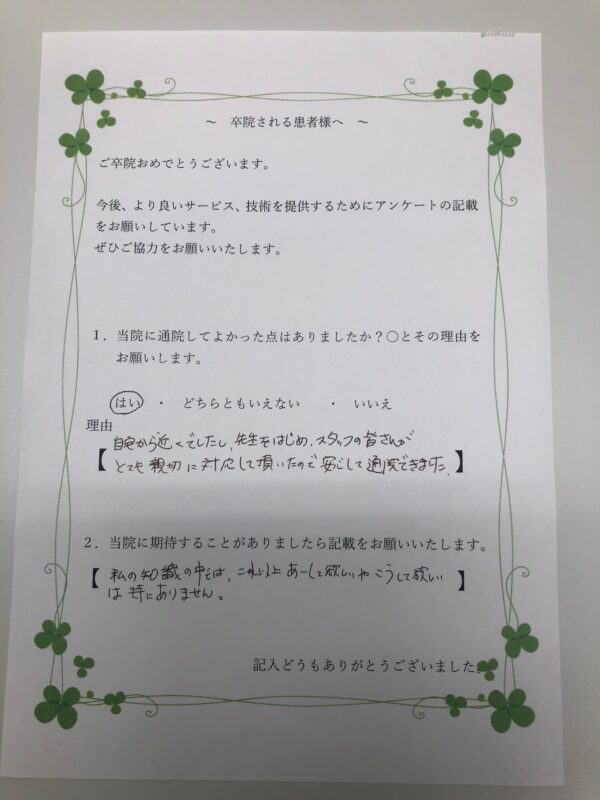 ～　卒院される患者様へ　～
ご卒院おめでとうございます。
今後、より良いサービス、技術を提供するためにアンケートの記載
をお願いしています。
ぜひご協力をお願いいたします。
１．当院に通院してよかった点はありましたか？〇とその理由を
お願いします。
はい　・　どちらともいえない　・　いいえ
理由
自宅から近くでしたし、先生をはじめ、スタッフの皆さんが
【とても親切に対応して頂いたので安心して通院できました。】
２．当院に期待することがありましたら記載をお願いいたします。
【私の知識の中では、これ以上あーして欲しいやこうして欲しい】
は特にありません。
記入どうもありがとうございました。